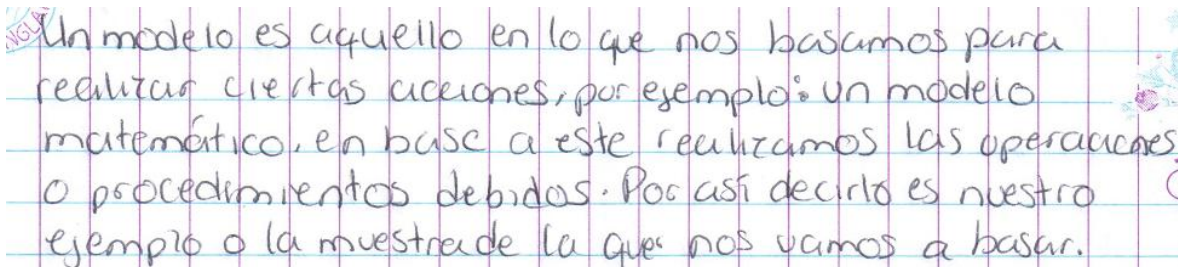 Un modelo es aquello en lo que nos basamos para
realizar ciertas acciones, por ejemplo: un modelo
matemático, en base a este realizamos las operaciones
o procedimientos debidos. Por así decirlo es nuestro
ejemplo o la muestra de la que nos vamos a basar.